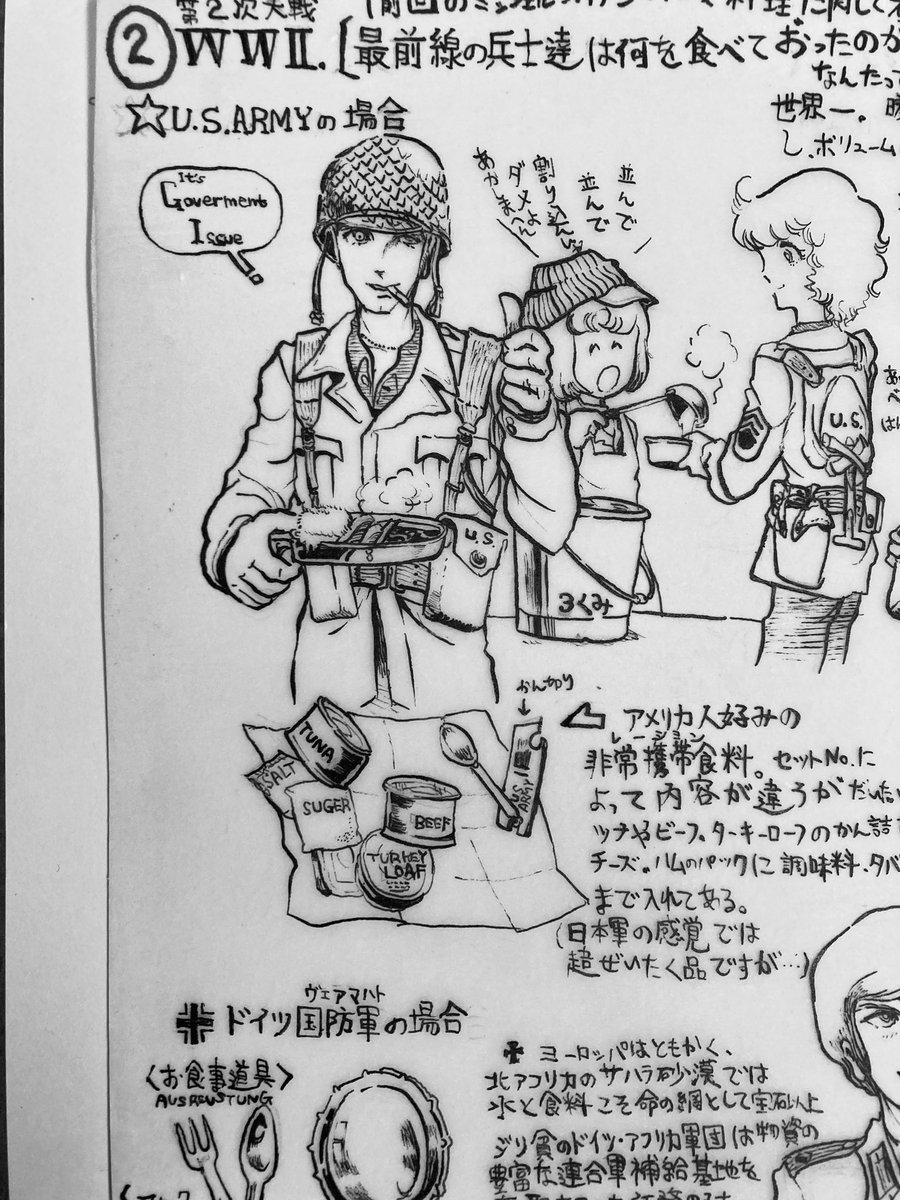 第2次大戦
② WWⅡ.[最前線の兵士達は何を食べておったのか
なんたって
世界一。
し、ボリューム
☆U.S.ARMYの場合
It's
Goverments
Issue
並んで
並んで
割り込んじゃ
ダメよん
あかーまへん
U.S.
U.S.
3くみ
かん切り
TUNA
SALT
SUGER
BEEF
TURKEY
LOAF
US ARMY
アメリカ人好みの
レーション
非常携帯食料。セットNo.に
よって内容が違うがだいたい
ツナやビーフ。ターキーローフのかん詰
チーズ。ハムのパックに調味料、タバ
まで入れてある。
(日本軍の感覚では
超ぜいたく品ですが…)
ヴェアマハト
ドイツ国防軍の場合
〈お食事道具〉
AUSREUSTUNG
ヨーロッパはともかく、
北アフリカのサハラ砂漠では
水と食料こそ命の綱として宝石以上
ジリ貧のドイツ・アフリカ軍団は物資の
豊富な連合軍補給基地を